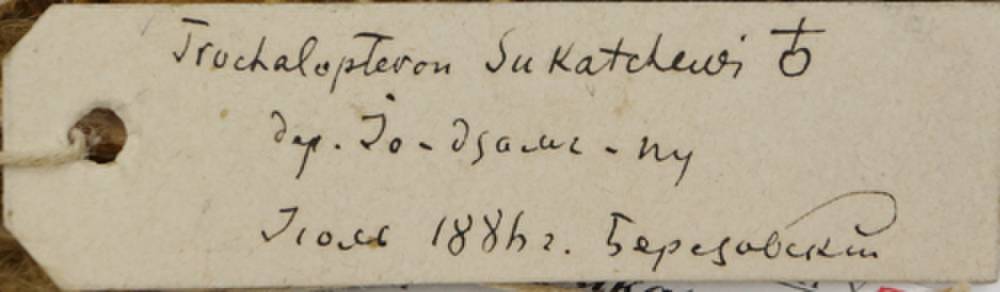 Trochalopteron Sukatchewi ♁
дер. Io-дзамг-пу
Iюль 1886 г. Березовскiй